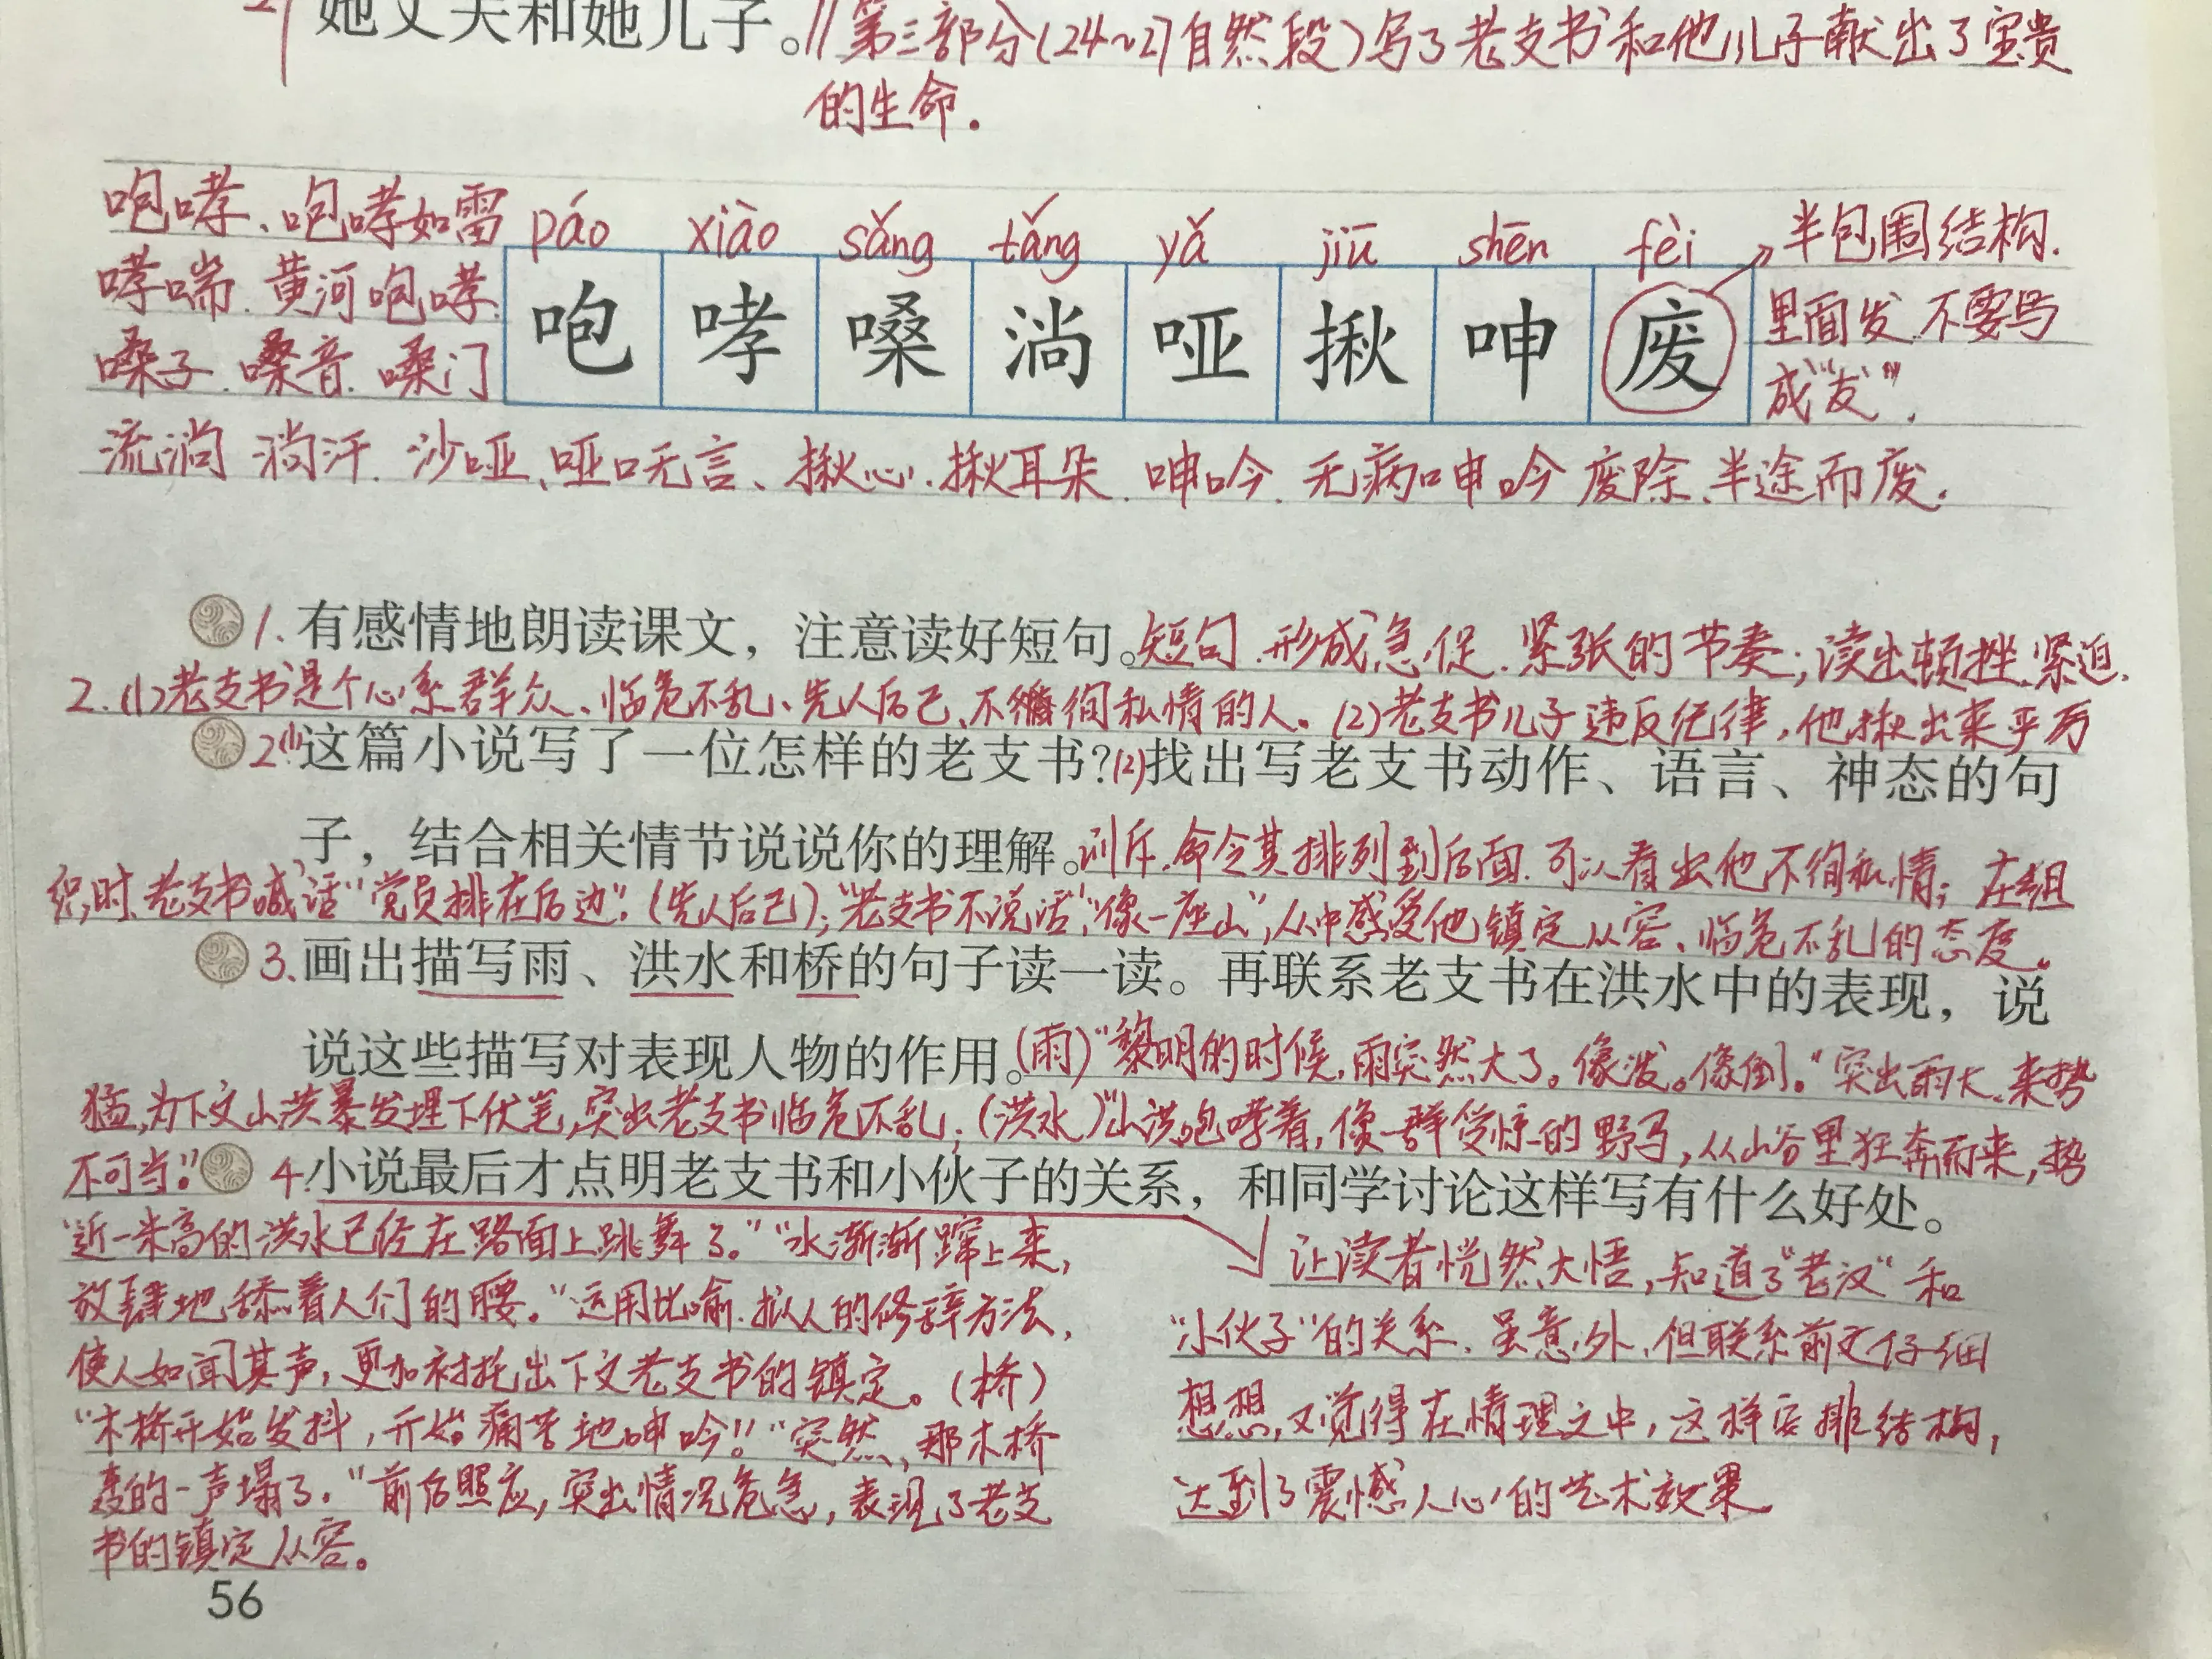 她丈夫和她儿子。//第三部分(24~27自然段)写了老支书和他儿子献出了宝贵
的生命.
咆哮、咆哮如雷 páo xiào sǎng tǎng yǎ jiū shēn fèi 半包围结构.
哮喘.黄河咆哮. 咆 哮 嗓 淌 哑 揪 呻 废 里面发.不要写
嗓子.嗓音.嗓门 成"友".
流淌 淌汗.沙哑、哑口无言、揪心.揪耳朵.呻吟.无病呻吟 废除.半途而废.
1.有感情地朗读课文，注意读好短句。短句.形成急促.紧张的节奏;读出顿挫.紧迫.
2.(1)老支书是个心系群众、临危不乱、先人后己、不徇私情的人。(2)老支书儿子违反纪律,他揪出来严厉
2(1)这篇小说写了一位怎样的老支书?(2)找出写老支书动作、语言、神态的句
子，结合相关情节说说你的理解。训斥.命令其排列到后面.可以看出他不徇私情;在组
织时.老支书喊话"党员排在后边".(先人后己);"老支书不说话","像一座山",从中感受他镇定从容、临危不乱的态度。
3.画出描写雨、洪水和桥的句子读一读。再联系老支书在洪水中的表现，说
说这些描写对表现人物的作用。(雨)"黎明的时候,雨突然大了。像泼。像倒。"突出雨大.来势
猛,为下文山洪暴发埋下伏笔,突出老支书临危不乱;(洪水)"山洪咆哮着,像一群受惊的野马,从山谷里狂奔而来,势
不可当!" 4.小说最后才点明老支书和小伙子的关系，和同学讨论这样写有什么好处。
"近一米高的洪水已经在路面上跳舞了。""水渐渐蹿上来,
放肆地舔着人们的腰。"运用比喻.拟人的修辞方法,
使人如闻其声,更加衬托出下文老支书的镇定。(桥)
"木桥开始发抖,开始痛苦地呻吟!""突然,那木桥
轰的一声塌了."前后照应,突出情况危急,表现了老支
书的镇定从容。
让读者恍然大悟,知道了"老汉"和
"小伙子"的关系.虽意外,但联系前文仔细
想想,又觉得在情理之中,这样安排结构,
达到了震撼人心的艺术效果
56